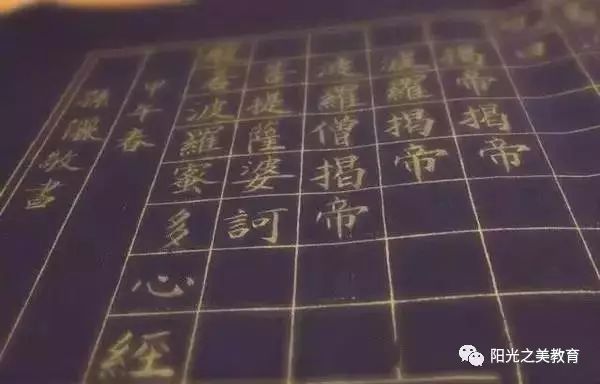 曰
揭帝揭帝
波羅揭帝
波羅僧揭帝
菩提薩婆訶
般若波羅蜜多心經
甲午春
孫儷敬書
阳光之美教育